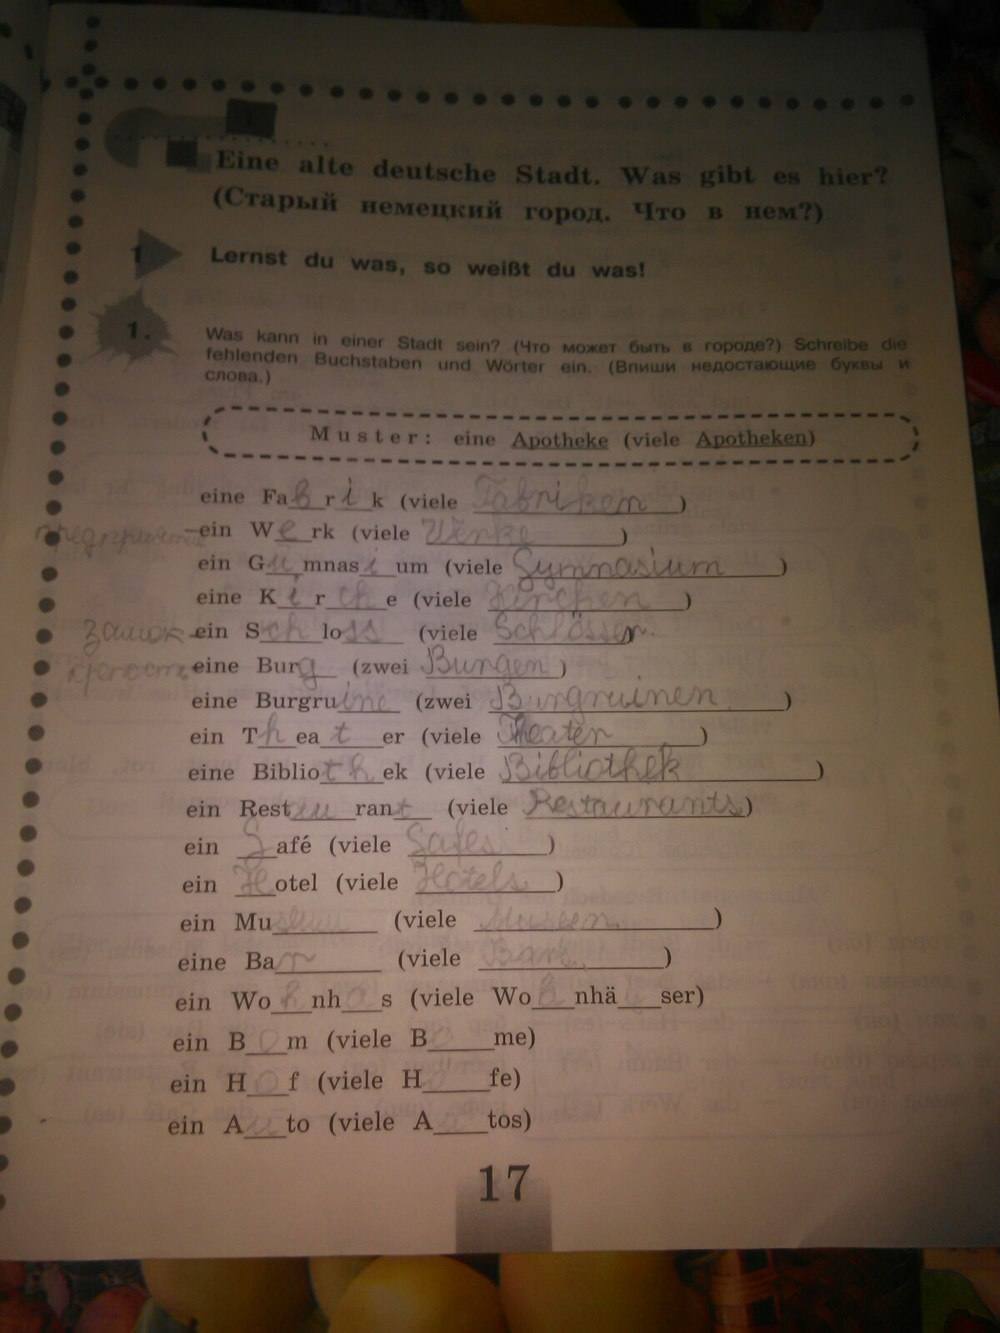 Eine alte deutsche Stadt. Was gibt es hier?
(Старый немецкий город. Что в нем?)
1 Lernst du was, so weißt du was!
1. Was kann in einer Stadt sein? (Что может быть в городе?) Schreibe die
fehlenden Buchstaben und Wörter ein. (Впиши недостающие буквы и
слова.)
Muster: eine Apotheke (viele Apotheken)
eine Fabrik (viele Fabriken)
ein Werk (viele Werke)
ein Gumnasium (viele Gymnasium)
eine Kirche (viele Kirchen)
замок ein Schloss (viele Schlösser)
крепость eine Burg (zwei Burgen)
eine Burgruine (zwei Burgruinen)
ein Theater (viele Theater)
eine Bibliothek (viele Bibliothek)
ein Restaurant (viele Restaurants)
ein afé (viele )
ein Hotel (viele Hotels)
ein Museum (viele Museen)
eine Bar (viele )
ein Wohnhas (viele Wo nhä ser)
ein Bom (viele B me)
ein Hof (viele H fe)
ein Auto (viele A tos)
17